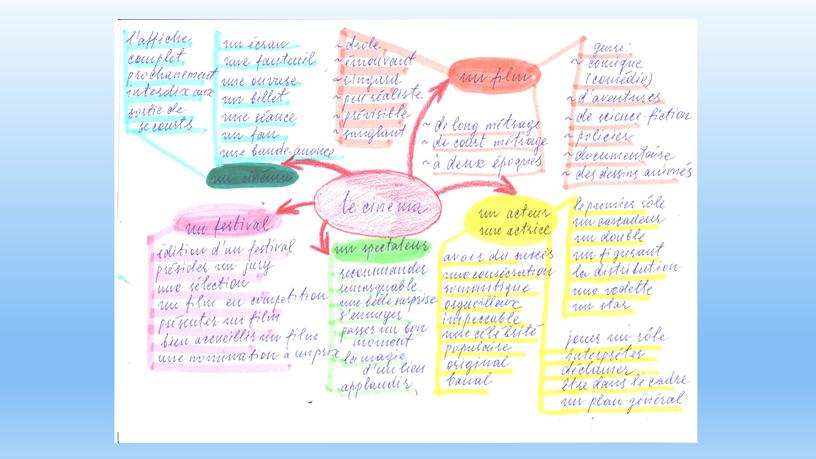 l'affiche
complet
prochainement
interdix aux
sortie de
secousts
un écran
une fauteuil
une ouvreuse
un billet
une séance
un fan
une bande-anonce
un cinéma
~ drole
~ émouvant
~ ringard
~ peu réaliste
~ prévisible
~ sanglant
un film
~ de long métrage
~ de court métrage
~ à deux époques
genre:
~ comique
(comédie)
~ d'aventures
~ de science-fiction
~ policier
~ documentaire
~ des dessins animés
le cinéma
un festival
édition d'un festival
présider un jury
une sélection
un film en compétition
présenter un film
bien accueillir un film
une nomination à un prix
un spectateur
recommander
remarquable
une belle surprise
s'ennuyer
passer un bon
moment
la magie
d'un lieu
applaudir
un acteur
une actrice
avoir du succès
une consécration
romantique
orgueilleux
impeccable
une célébrité
populaire
original
banal
le premier rôle
un cascadeur
un double
un figurant
la distribution
une vedette
un star
jouer un rôle
interpréter
déclamer
être dans le cadre
un plan général